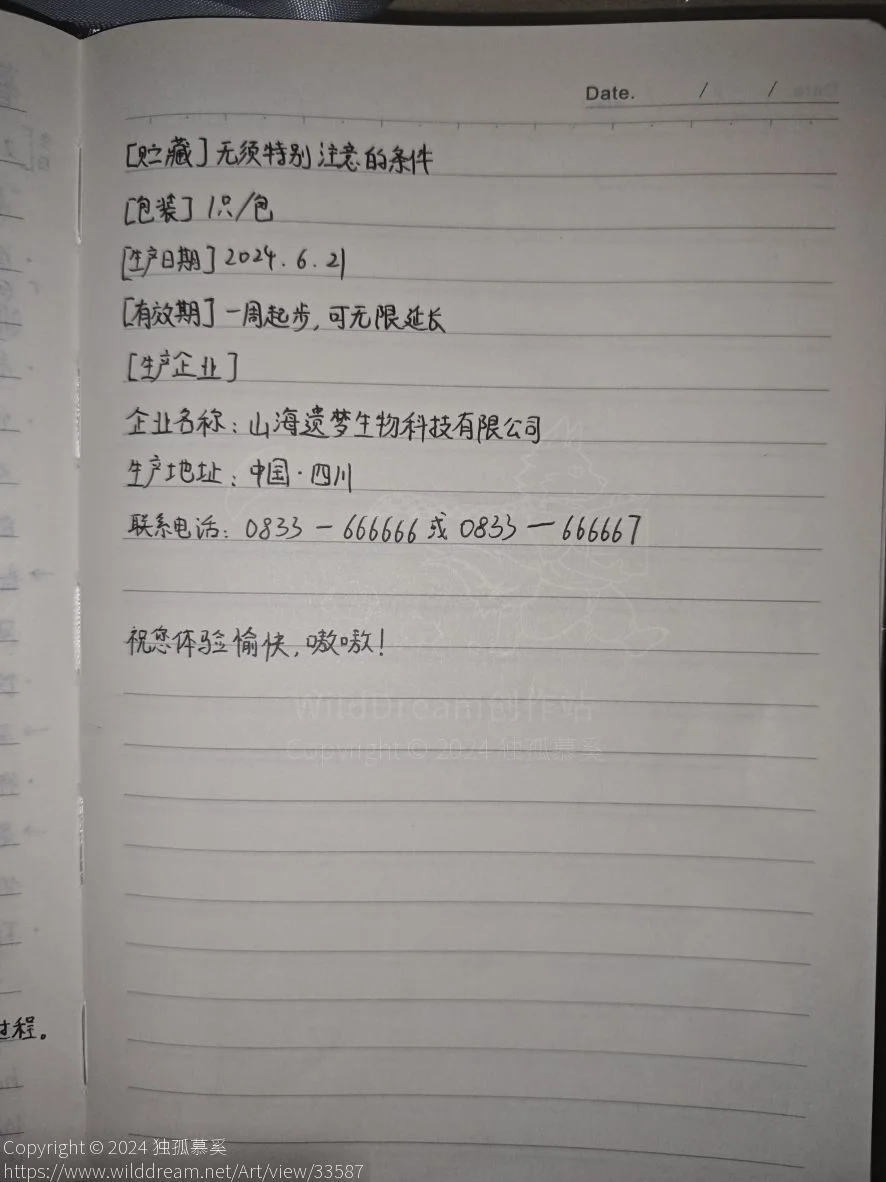 Date. / /
[贮藏] 无须特别注意的条件
[包装] 1只/包
[生产日期] 2024.6.21
[有效期] 一周起步,可无限延长
[生产企业]
企业名称:山海遗梦生物科技有限公司
生产地址:中国·四川
联系电话:0833-666666或0833-666667
祝您体验愉快,嗷嗷!
WildDream创作站
Copyright © 2024 独孤慕奚
过程。
Copyright © 2024 独孤慕奚
https://www.wilddream.net/Art/view/33587